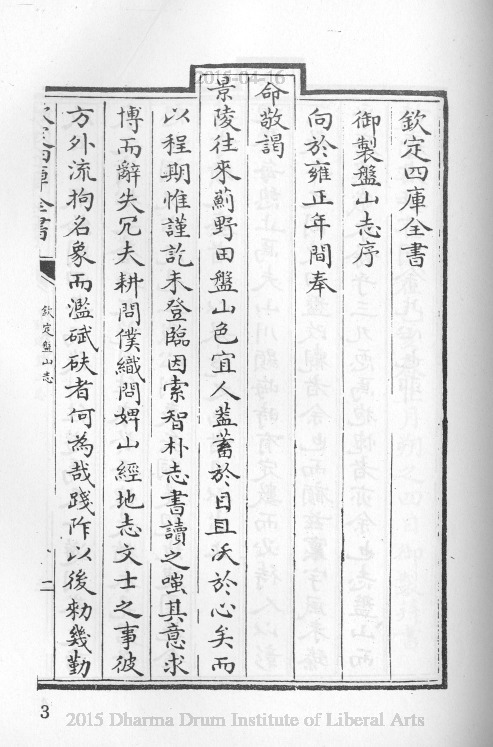 2015-04-16
欽定四庫全書
御製盤山志序
向於雍正年間奉
命敬謁
景陵往來薊野田盤山色宜人蓋蓄於目且沃於心矣而
以程期惟謹訖未登臨因索智朴志書讀之嗤其意求
博而辭失冗夫耕問僕織問婢山經地志文士之事彼
方外流拘名象而濫碔砆者何為哉踐阼以後勅幾勤
欽定四庫全書
欽定盤山志
二
3
2015 Dharma Drum Institute of Liberal Arts